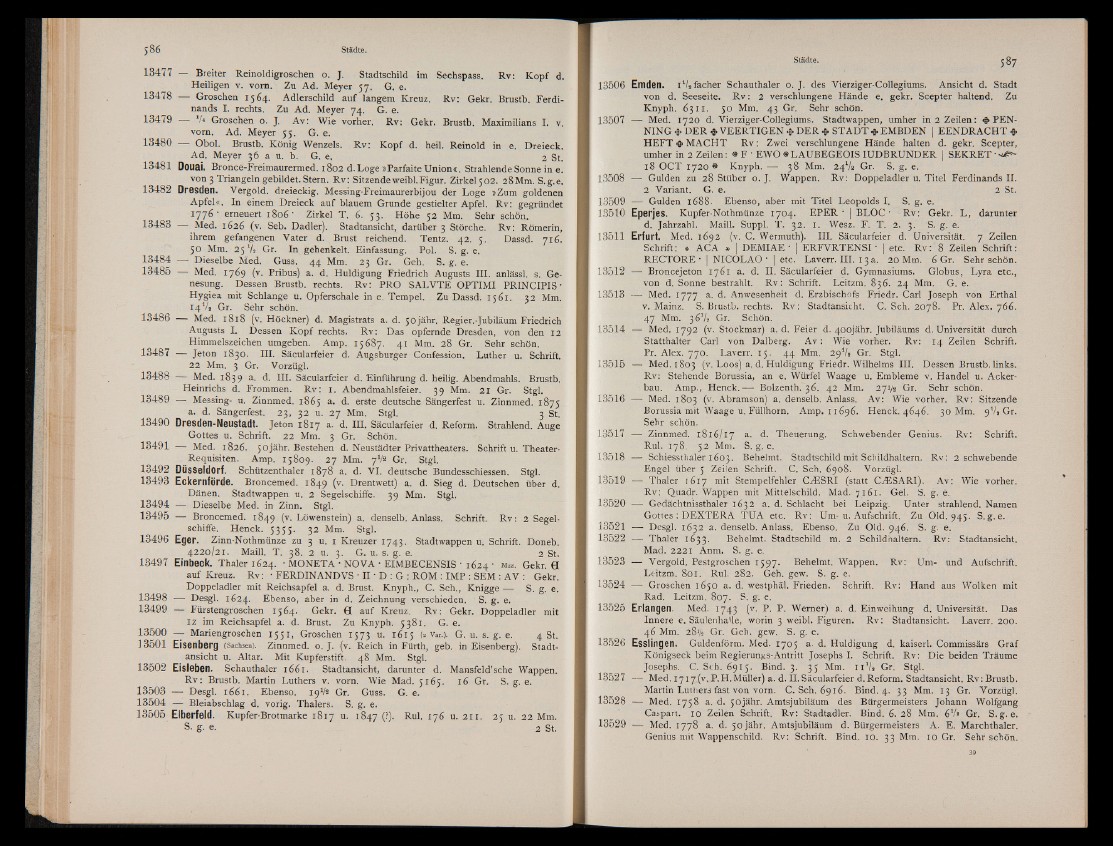 586 Städte.
13477 — Breiter Reinoldigroschen o. J. Stadtschild im Sechspass. Rv: Kopf d.
Heiligen v. vorn. Zu Ad. Meyer 57. G. e.
13478 — Groschen 1564. Adlerschild auf langem Kreuz. Rv: Gekr. Brustb. Ferdi-
nands I. rechts. Zu Ad. Meyer 74. G. e.
13479 — Groschen o. J. Av: Wie vorher. Rv: Gekr. Brustb. Maximilians I. v.
vorn. Ad. Meyer 55. G. e.
13480 — Obol. Brustb. König Wenzels. Rv: Kopf d. heil. Reinold in e. Dreieck.
Ad. Meyer 36 a u. b. G. e. 2 St.
13481 Douai. Bronce-Freimaurermed. 1802 d. Loge »Parfaite Union«, Strahlende Sonne in e.
von 3 Triangeln gebildet. Stern. Rv: Sitzende weibl. Figur. Zirkel 502. 28 Mm. S. g. e.
13482 Dresden. Vergold. dreieckig. Messing-Freimaurerbijou der Loge »Zum goldenen
Apfel«. In einem Dreieck auf blauem Grunde gestielter Apfel. Rv: gegründet
1776 · erneuert 1806 · Zirkel T. 6. 53. Höhe 52 Mm. Sehr schön.
13483 — Med. 1626 (v. Seb. Dadler). Stadtansicht, darüber 3 Störche. Rv: Römerin,
ihrem gefangenen Vater d. Brust reichend. Tentz. 42. 5. Dassd. 716.
50 Mm. 23 ½ Gr. In gehenkelt. Einfassung. Pol. S. g. e.
13484 — Dieselbe Med. Guss. 44 Mm. 23 Gr. Geh. S. g. e.
13485 — Med. 1769 (v. Pribus) a. d. Huldigung Friedrich Augusts III. anlässl. s. Ge-
nesung. Dessen Brustb. rechts. Rv: PRO SALVTE OPTIMI PRINCIPIS ·
Hygiea mit Schlange u. Opferschale in e. Tempel. Zu Dassd. 1561. 32 Mm.
14½ Gr. Sehr schön.
13486 — Med. 1818 (v. Höckner) d. Magistrats a. d. 50jähr. Regier.-Jubiläum Friedrich
Augusts I. Dessen Kopf rechts. Rv: Das opfernde Dresden, von den 12
Himmelszeichen umgeben. Amp. 15687. 41 Mm. 28 Gr. Sehr schön.
13487 — Jeton 1830. III. Säcularfeier d. Augsburger Confession. Luther u. Schrift.
22 Mm. 3 Gr. Vorzügl.
13488 — Med. 1839 a. d. III. Säcularfeier d. Einführung d. heilig. Abendmahls. Brustb.
Heinrichs d. Frommen. Rv: 1. Abendmahlsfeier. 39 Mm. 21 Gr. Stgl.
13489 — Messing- u. Zinnmed. 1865 a. d. erste deutsche Sängerfest u. Zinnmed. 1875
a. d. Sängerfest. 23, 32 u. 27 Mm. Stgl. 3 St.
13490 Dresden-Neustadt. Jeton 1817 a. d. III. Säcularfeier d. Reform. Strahlend. Auge
Gottes u. Schrift. 22 Mm. 3 Gr. Schön.
13491 — Med. 1826. 50jähr. Bestehen d. Neustädter Privattheaters. Schrift u. Theater-
Requisiten. Amp. 15809. 27 Mm. 7½ Gr. Stgl.
13492 Düsseldorf. Schützenthaler 1878 a. d. VI. deutsche Bundesschiessen. Stgl.
13493 Eckernförde. Broncemed. 1849 (v. Drentwett) a. d. Sieg d. Deutschen über d.
Dänen. Stadtwappen u. 2 Segelschiffe. 39 Mm. Stgl.
13494 — Dieselbe Med. in Zinn. Stgl.
13495 — Broncemed. 1849 (v. Löwenstein) a. denselb. Anlass. Schrift. Rv: 2 Segel-
schiffe. Henck. 5355. 32 Mm. Stgl.
13496 Eger. Zinn-Nothmünze zu 3 u. 1 Kreuzer 1743. Stadtwappen u. Schrift. Doneb.
4220/21. Maill. T. 38. 2 u. 3. G. u. s. g. e. 2 St.
13497 Einbeck. Thaler 1624. · MONETA · NOVA · EIMBECENSIS · 1624 · Gekr. E
auf Kreuz. Rv: · FERDINANDVS · II · D : G : ROM : IMP : SEM : AV : Gekr.
Doppeladler mit Reichsapfel a. d. Brust. Knyph., C. Sch., Knigge — S. g. e.
13498 — Desgl. 1624. Ebenso, aber in d. Zeichnung verschieden. S. g. e.
13499 — Fürstengroschen 1564. Gekr. E auf Kreuz. Rv: Gekr. Doppeladler mit
12 im Reichsapfel a. d. Brust. Zu Knyph. 5381. G. e.
13500 — Mariengroschen 1551, Groschen 1573 u. 1615 (2 Var.). G. u. s. g. e. 4 St.
13501 Eisenberg (Sachsen). Zinnmed. o. J. (v. Reich in Fürth, geb. in Eisenberg). Stadt-
ansicht u. Altar. Mit Kupferstift. 48 Mm. Stgl.
13502 Eisleben. Schauthaler 1661. Stadtansicht, darunter d. Mansfeld'sche Wappen.
Rv: Brustb. Martin Luthers v. vorn. Wie Mad. 5165. 16 Gr. S. g. e.
13503 — Desgl. 1661. Ebenso. 19½ Gr. Guss. G. e.
13504 — Bleiabschlag d. vorig. Thalers. S. g. e.
13505 Elberfeld. Kupfer-Brotmarke 1817 u. 1847 (?). Rul. 176 u. 211. 25 u. 22 Mm.
S. g. e. 2 St.
Städte. 587
13506 Emden. 1½ facher Schauthaler o. J. des Vierziger-Collegiums. Ansicht d. Stadt
von d. Seeseite. Rv: 2 verschlungene Hände e. gekr. Scepter haltend. Zu
Knyph. 6311. 50 Mm. 43 Gr. Sehr schön.
13507 — Med. 1720 d. Vierziger-Collegiums. Stadtwappen, umher in 2 Zeilen: ✥ PEN-
NING ✥ DER ✥ VEERTIGEN ✥ DER ✥ STADT ✥ EMBDEN | EENDRACHT ✥
HEFT ✥ MACHT Rv: Zwei verschlungene Hände halten d. gekr. Scepter,
umher in 2 Zeilen: * F · EWO * LAUBEGEOIS IUDBRUNDER | SEKRET ·
18 OCT 1720 * Knyph. — 38 Mm. 24½ Gr. S. g. e.
13508 — Gulden zu 28 Stüber o. J. Wappen. Rv: Doppeladler u. Titel Ferdinands II.
2 Variant. G. e. 2 St.
13509 — Gulden 1688. Ebenso, aber mit Titel Leopolds I. S. g. e.
13510 Eperjes. Kupfer-Nothmünze 1704. EPER · | BLOC · Rv: Gekr. L, darunter
d. Jahrzahl. Maill. Suppl. T. 32. 1. Wesz. F. T. 2. 3. S. g. e.
13511 Erfurt. Med. 1692 (v. C. Wermuth). III. Säcularfeier d. Universität. 7 Zeilen
Schrift: * ACA * | DEMIAE · | ERFVRTENSI · | etc. Rv: 8 Zeilen Schrift:
RECTORE · | NICOLAO · | etc. Laverr. III. 13a. 20 Mm. 6 Gr. Sehr schön.
13512 — Broncejeton 1761 a. d. II. Säcularfeier d. Gymnasiums. Globus, Lyra etc.,
von d. Sonne bestrahlt. Rv: Schrift. Leitzm. 836. 24 Mm. G. e.
13513 — Med. 1777 a. d. Anwesenheit d. Erzbischofs Friedr. Carl Joseph von Erthal
v. Mainz. S. Brustb. rechts. Rv: Stadtansicht. C. Sch. 2078. Pr. Alex. 766.
47 Mm. 36½ Gr. Schön.
13514 — Med. 1792 (v. Stockmar) a. d. Feier d. 400jähr. Jubiläums d. Universität durch
Statthalter Carl von Dalberg. Av: Wie vorher. Rv: 14 Zeilen Schrift.
Pr. Alex. 770. Laverr. 15. 44 Mm. 29½ Gr. Stgl.
13515 — Med. 1803 (v. Loos) a. d. Huldigung Friedr. Wilhelms III. Dessen Brustb. links.
Rv: Stehende Borussia, an e. Würfel Waage u. Embleme v. Handel u. Acker-
bau. Amp., Henck. — Bolzenth. 36. 42 Mm. 27½ Gr. Sehr schön.
13516 — Med. 1803 (v. Abramson) a. denselb. Anlass. Av: Wie vorher. Rv: Sitzende
Borussia mit Waage u. Füllhorn. Amp. 11696. Henck. 4646. 30 Mm. 9½ Gr.
Sehr schön.
13517 — Zinnmed. 1816/17 a. d. Theuerung. Schwebender Genius. Rv: Schrift.
Rul. 178. 52 Mm. S. g. e.
13518 — Schiessthaler 1603. Behelmt. Stadtschild mit Schildhaltern. Rv: 2 schwebende
Engel über 5 Zeilen Schrift. C. Sch. 6908. Vorzügl.
13519 — Thaler 1617 mit Stempelfehler CÆSRI (statt CÆSARI). Av: Wie vorher.
Rv: Quadr. Wappen mit Mittelschild. Mad. 7161. Gel. S. g. e.
13520 — Gedächtnissthaler 1632 a. d. Schlacht bei Leipzig. Unter strahlend. Namen
Gottes: DEXTERA TUA etc. Rv: Um- u. Aufschrift. Zu Old. 945. S. g. e.
13521 — Desgl. 1632 a. denselb. Anlass. Ebenso. Zu Old. 946. S. g. e.
13522 — Thaler 1633. Behelmt. Stadtschild m. 2 Schildhaltern. Rv: Stadtansicht.
Mad. 2221 Anm. S. g. e.
13523 — Vergold. Pestgroschen 1597. Behelmt. Wappen. Rv: Um- und Aufschrift.
Leitzm. 801. Rul. 282. Geh. gew. S. g. e.
13524 — Groschen 1650 a. d. westphäl. Frieden. Schrift. Rv: Hand aus Wolken mit
Rad. Leitzm. 807. S. g. e.
13525 Erlangen. Med. 1743 (v. P. P. Werner) a. d. Einweihung d. Universität. Das
Innere e. Säulenhalle, worin 3 weibl. Figuren. Rv: Stadtansicht. Laverr. 200.
46 Mm. 28½ Gr. Geh. gew. S. g. e.
13526 Esslingen. Guldenförm. Med. 1705 a. d. Huldigung d. kaiserl. Commissärs Graf
Königseck beim Regierungs-Antritt Josephs I. Schrift. Rv: Die beiden Träume
Josephs. C. Sch. 6915. Bind. 3. 35 Mm. 11½ Gr. Stgl.
13527 — Med. 1717 (v. P. H. Müller) a. d. II. Säcularfeier d. Reform. Stadtansicht. Rv: Brustb.
Martin Luthers fast von vorn. C. Sch. 6916. Bind. 4. 33 Mm. 13 Gr. Vorzügl.
13528 — Med. 1758 a. d. 50jähr. Amtsjubiläum des Bürgermeisters Johann Wolfgang
Caspart. 10 Zeilen Schrift. Rv: Stadtadler. Bind. 6. 28 Mm. 6½ Gr. S. g. e.
13529 — Med. 1778 a. d. 50jähr. Amtsjubiläum d. Bürgermeisters A. E. Marchthaler.
Genius mit Wappenschild. Rv: Schrift. Bind. 10. 33 Mm. 10 Gr. Sehr schön.
39